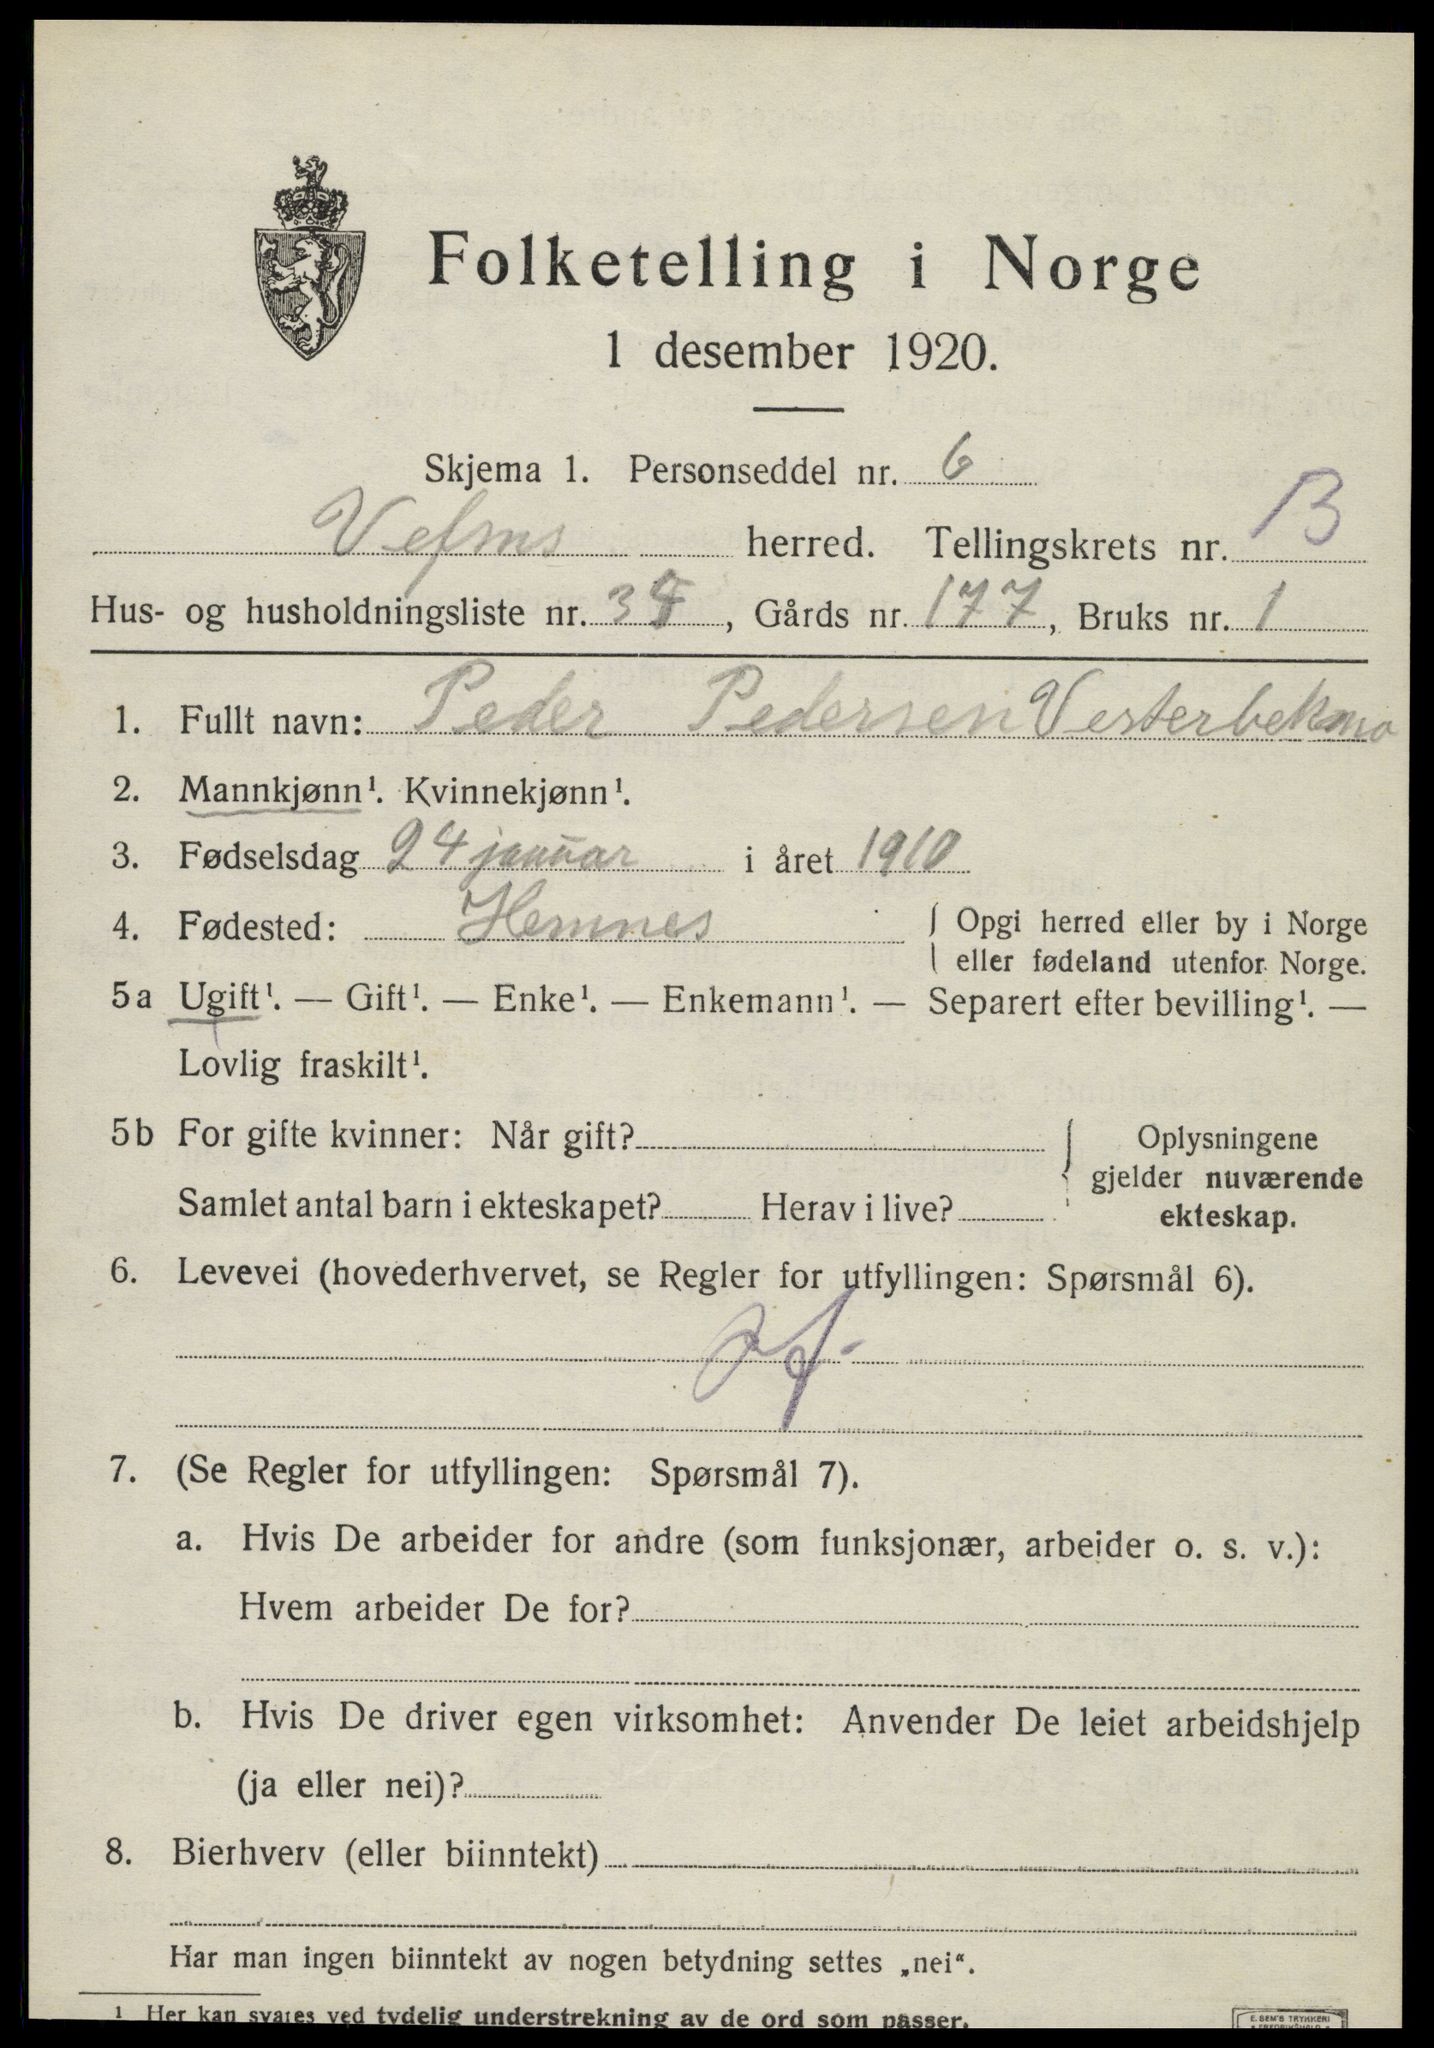 Folketelling i Norge
1 desember 1920.
Skjema 1. Personseddel nr. 6
Vefsns herred. Tellingskrets nr. 13
Hus- og husholdningsliste nr. 34, Gårds nr. 177, Bruks nr. 1
1. Fullt navn: Peder Pedersen Vesterbekmo
2. Mannkjønn¹. Kvinnekjønn¹.
3. Fødselsdag 24 januar i året 1910
4. Fødested: Hemnes { Opgi herred eller by i Norge
eller fødeland utenfor Norge.
5a Ugift¹. — Gift¹. — Enke¹. — Enkemann¹. — Separert efter bevilling¹. —
Lovlig fraskilt¹.
5b For gifte kvinner: Når gift? { Oplysningene
gjelder nuværende
Samlet antal barn i ekteskapet? Herav i live? ekteskap.
6. Levevei (hovederhvervet, se Regler for utfyllingen: Spørsmål 6).
7. (Se Regler for utfyllingen: Spørsmål 7).
a. Hvis De arbeider for andre (som funksjonær, arbeider o. s. v.):
Hvem arbeider De for?
b. Hvis De driver egen virksomhet: Anvender De leiet arbeidshjelp
(ja eller nei)?
8. Bierhverv (eller biinntekt)
Har man ingen biinntekt av nogen betydning settes „nei“.
¹ Her kan svares ved tydelig understrekning av de ord som passer.
E. SEM'S TRYKKERI
FREDRIKSHALD